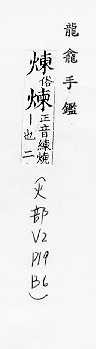 龍龕手鑑
煉俗煉正音練燒
丨也二
(火部
V2
P19
B6)